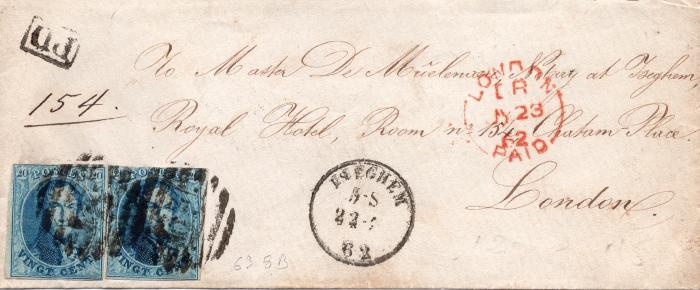 PD
To Master De Mûelenaere Notary at Iseghem,
154.
Royal Hotel, Room n° 154 Chatam-Place.
London.
LONDON
JY 23
62
PAID
ISEGHEM
62
20 POSTES 20
VINGT CENT
POSTES
VINGT CENT
63 8B